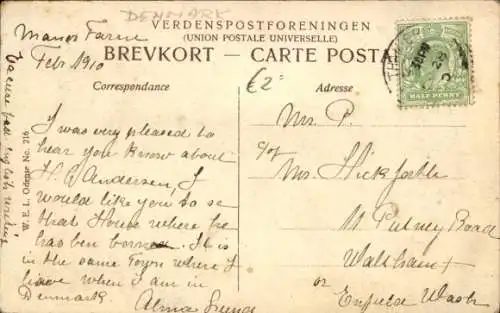 DENMARK
VERDENSPOSTFORENINGEN
(UNION POSTALE UNIVERSELLE)
BREVKORT - CARTE POSTA
Manor Farm
Feb 1910
Correspondance
Adresse
£2=
HALF PENNY
W. E. L. Odense No. 216
I was very pleased to
hear you know about
H. C Andersen, I
would like you to se
that House where he
has ben born. It is
in the same Town where I
live when I am in
Denmark.
Alma
Mrs. P.
c/of
Mrs. Hickforth
11 Putney Road
Waltham +
or
Enfield Wash
Excuse bad English writing